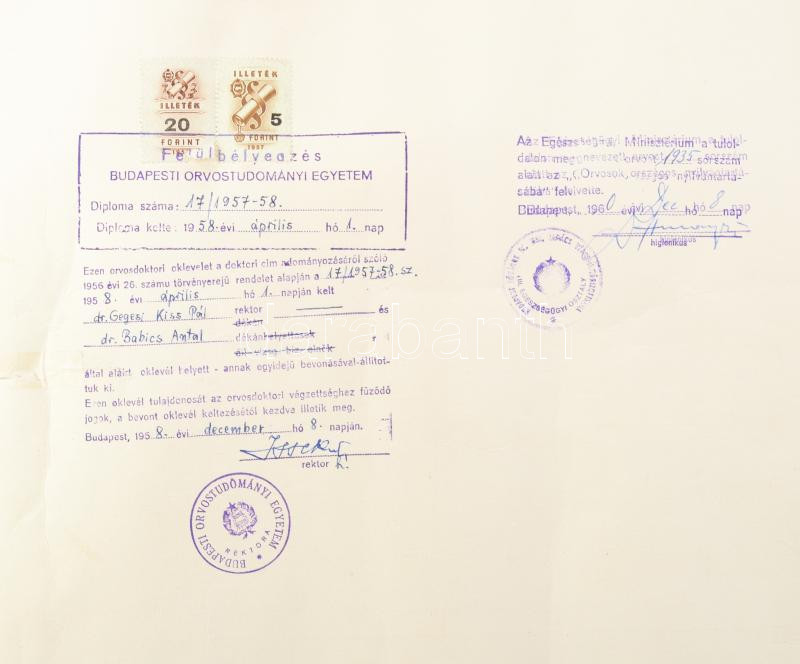 ILLETÉK
20
FORINT
ILLETÉK
5
FORINT
1957
Felülbélyegzés
BUDAPESTI ORVOSTUDOMÁNYI EGYETEM
Diploma száma: 17/1957-58.
Diploma kelte: 1958. évi április hó 1. nap
Ezen orvosdoktori oklevelet a doktori cím adományozásáról szóló
1956 évi 26. számu törvényerejü rendelet alapján a 17/1957-58. sz.
1958. évi április hó 1. napján kelt
dr. Gegesi Kiss Pál rektor és
dékán
dr. Babics Antal dékánhelyettesek
áll. vizsg. biz. elnök
által aláirt oklevél helyett - annak egyidejü bevonásával-állitot-
tuk ki.
Ezen oklevél tulajdonosát az orvosdoktori végzettséghez füződő
jogok, a bevont oklevél keltezésétől kezdve illetik meg.
Budapest, 1958. évi december hó 8. napján.
rektor h.
BUDAPESTI ORVOSTUDOMÁNYI EGYETEM
REKTORA
Az Egészségügyi Minisztérium a tulol-
dalon megnevezett orvost 1935 sorszám
alatt az „Orvosok országos nyilvántartá-
sába" felvette.
Budapest, 1960 évi Dec hó 8 nap
higiénikus
EGÉSZSÉGÜGYI OSZTÁLY
darabanth